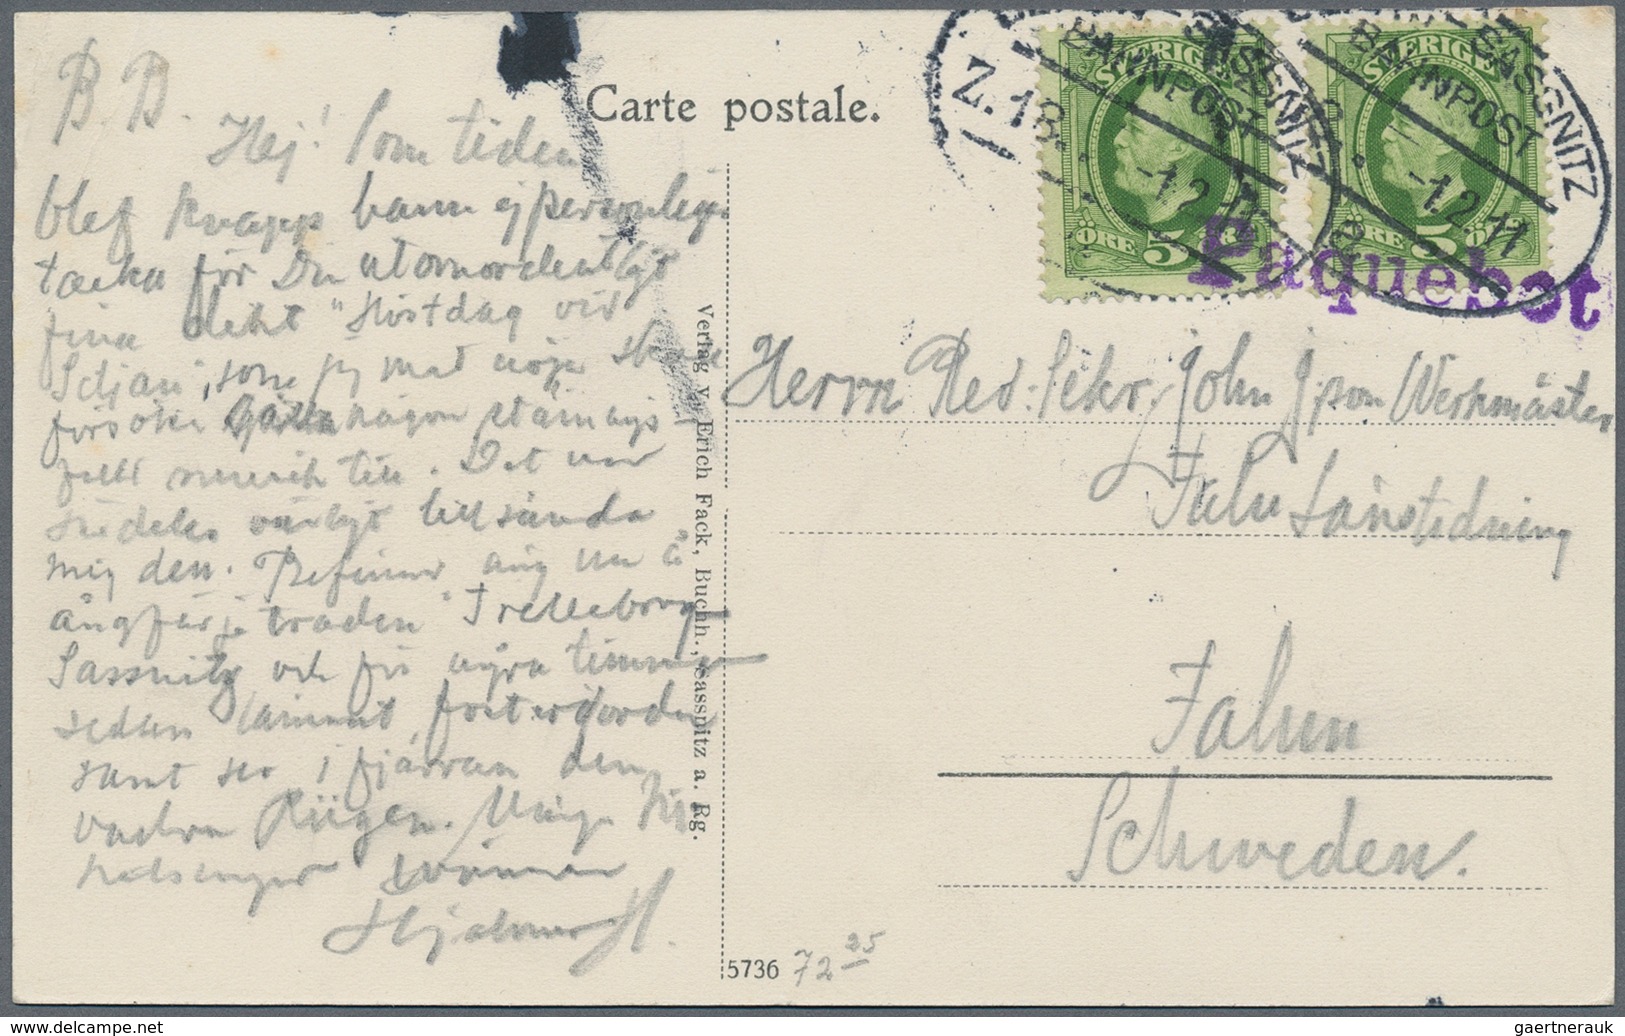 B. B.
Hej! Som tiden
blef knapp hann ej personligen
tacka för Din utomordentligt
fina dikt "Höstdag vid
Siljan", som jag med nöje skall
försöka någon stämnings-
full musik till. Det var
särdeles vänligt tillsända
mig den. Befinner mig nu å
ångfärjetraden Trelleborg
Sassnitz och för några timmar
sedan lämnat fosterjorden
samt ser i fjärran den
vackra Rügen. Många
hälsningar vännen
Hjalmar H.
Carte postale.
Verlag v. Erich Fack, Buchh., Sassnitz a. Rg.
5736
72 25
SVERIGE
ÖRE 5
SVERIGE
ÖRE 5 ÖRE
SASSNITZ
BAHNPOST
Z. 18
-1.2.11
SASSNITZ
BAHNPOST
-1.2.11
Paquebot
Herrn Red. Sekr. John Jpson Werkmäster
Falu Länstidning
Falun
Schweden.
gaertnerauk.com